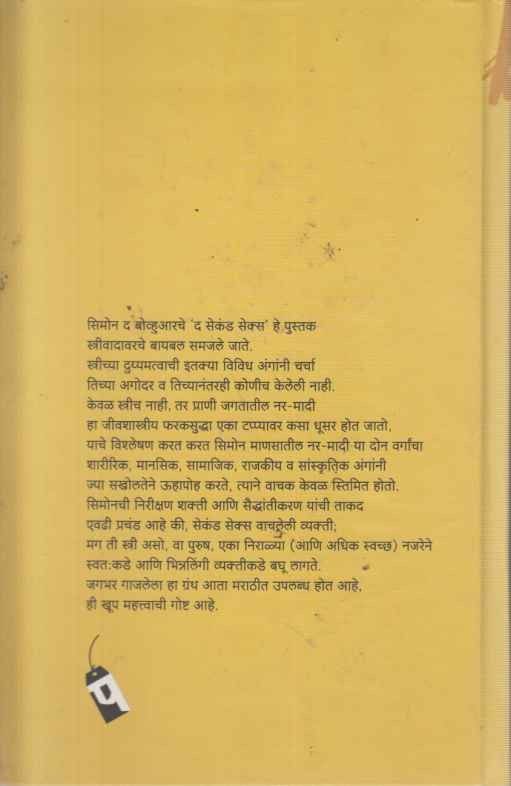 सिमोन द बोव्हुआरचे 'द सेकंड सेक्स' हे पुस्तक
स्त्रीवादावरचे बायबल समजले जाते.
स्त्रीच्या दुय्यमत्वाची इतक्या विविध अंगांनी चर्चा
तिच्या अगोदर व तिच्यानंतरही कोणीच केलेली नाही.
केवळ स्त्रीच नाही, तर प्राणी जगतातील नर-मादी
हा जीवशास्त्रीय फरकसुद्धा एका टप्प्यावर कसा धूसर होत जातो,
याचे विश्लेषण करत करत सिमोन माणसातील नर-मादी या दोन वर्गांचा
शारीरिक, मानसिक, सामाजिक, राजकीय व सांस्कृतिक अंगांनी
ज्या सखोलतेने ऊहापोह करते, त्याने वाचक केवळ स्तिमित होतो.
सिमोनची निरीक्षण शक्ती आणि सैद्धांतीकरण यांची ताकद
एवढी प्रचंड आहे की, सेकंड सेक्स वाचलेली व्यक्ती;
मग ती स्त्री असो, वा पुरुष, एका निराळ्या (आणि अधिक स्वच्छ) नजरेने
स्वत:कडे आणि भिन्नलिंगी व्यक्तीकडे बघू लागते.
जगभर गाजलेला हा ग्रंथ आता मराठीत उपलब्ध होत आहे,
ही खूप महत्त्वाची गोष्ट आहे.
प